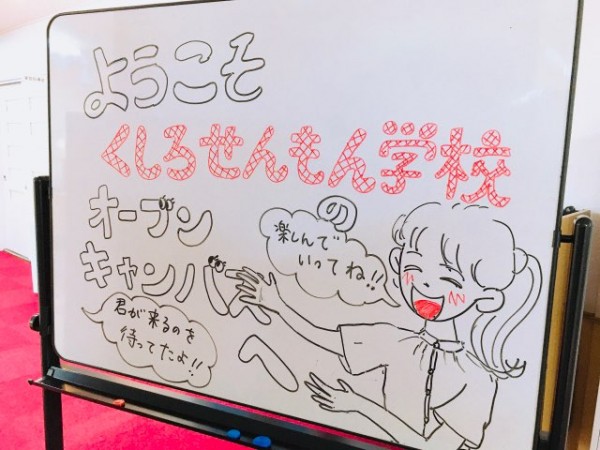 ようこそ
くしろせんもん学校
の
オープン
キャンパスへ
楽しんで
いってね!!
君が来るのを
待ってたよ!!